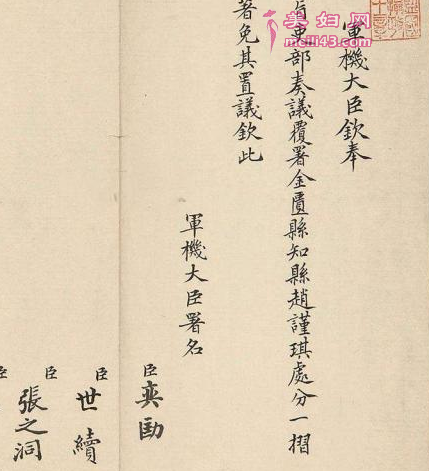 軍機大臣欽奉
旨吏部奏議覆署金匱縣知縣趙謹琪處分一摺
著免其置議欽此
軍機大臣署名
臣奕劻
臣世續
臣張之洞
臣
美妇网
meili43.com